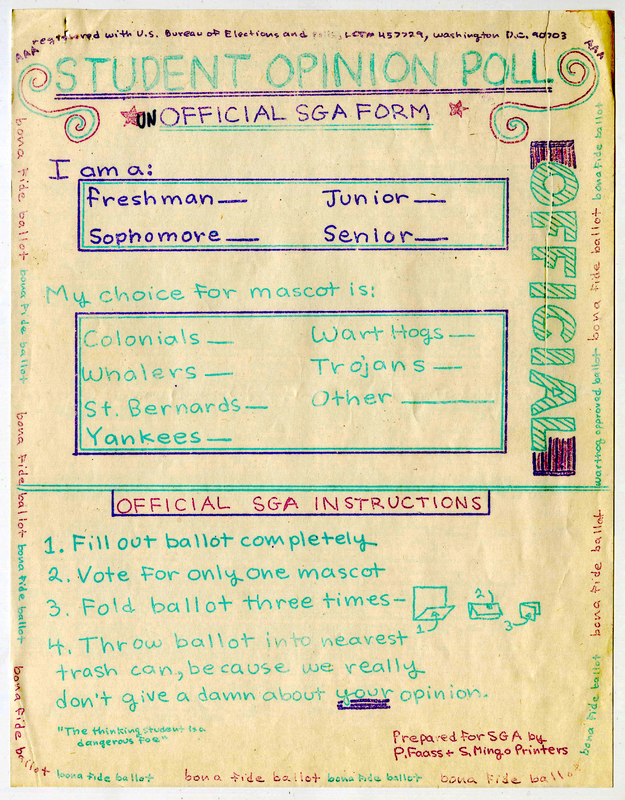 registered with U.S. Bureau of Elections and Polls, LCTN 457729, Washington D.C. 90703
AAA
AAA
STUDENT OPINION POLL
UNOFFICIAL SGA FORM
I am a:
Freshman__ Junior__
Sophomore__ Senior__
My choice for mascot is:
Colonials__ Wart Hogs__
Whalers__ Trojans__
St. Bernards__ Other ________
Yankees__
OFFICIAL
OFFICIAL SGA INSTRUCTIONS
1. Fill out ballot completely
2. Vote for only one mascot
3. Fold ballot three times-
1 2) 3
4. Throw ballot into nearest
trash can, because we really
don't give a damn about your opinion.
"The thinking student is a
dangerous foe"
Prepared for SGA by
P. Faass + S. Mingo Printers
bona fide ballot bona fide ballot bona fide ballot bona fide ballot bona fide ballot
bona fide ballot bona fide ballot warthog approved ballot bona fide ballot bona fide ballot
bona fide ballot bona fide ballot bona fide ballot bona fide ballot